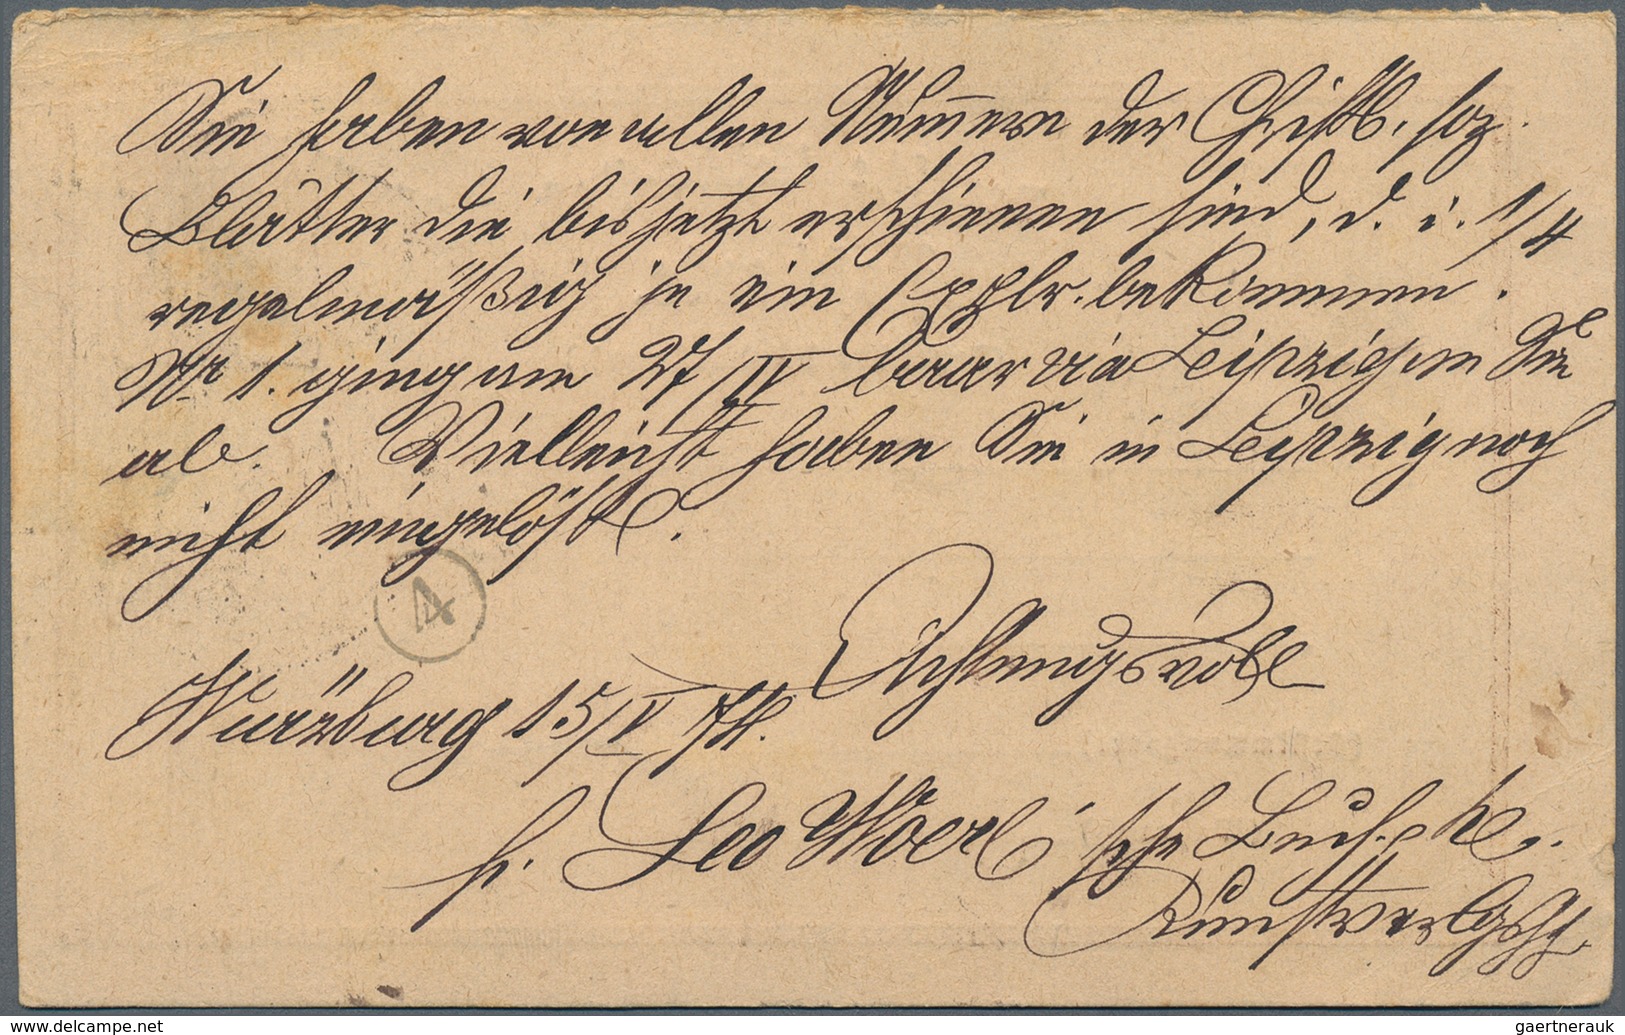 Sie haben von allen Nummern der Christl. soz.
Blätter die bis jetzt erschienen sind, d. i. 1/4
regelmäßig je ein Explr. bekommen.
No 1. ging am 27/IV baar via Leipzig an Sie
ab. Vielleicht haben Sie in Leipzig noch
nicht eingelöst.
4
Achtungsvoll
Würzburg 15/V 74.
p. Leo Woerl'sche Buch- &
Kunstverlgshg
www.delcampe.net
gaertnerauk